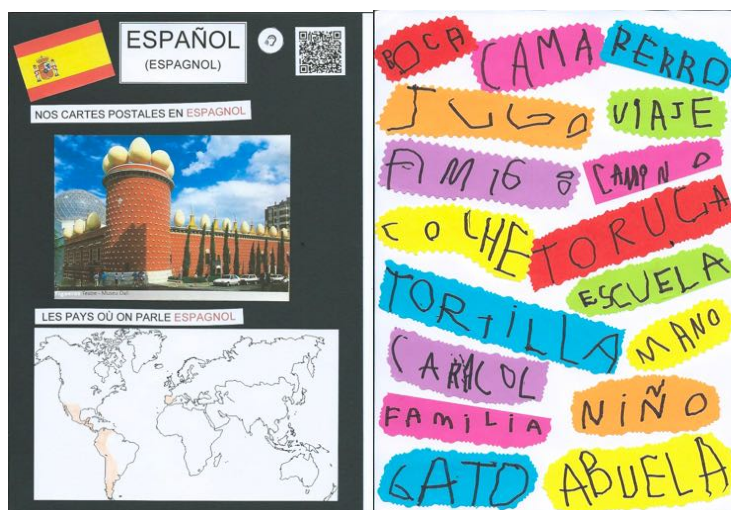 ESPAÑOL
(ESPAGNOL)
NOS CARTES POSTALES EN ESPAGNOL
LES PAYS OÙ ON PARLE ESPAGNOL
BOCA
CAMA
PERRO
JUGO
VIAJE
AMIGO
CAMINO
COCHE
TORUGA
ESCUELA
TORTILLA
MANO
CARACOL
FAMILIA
NIÑO
GATO
ABUELA